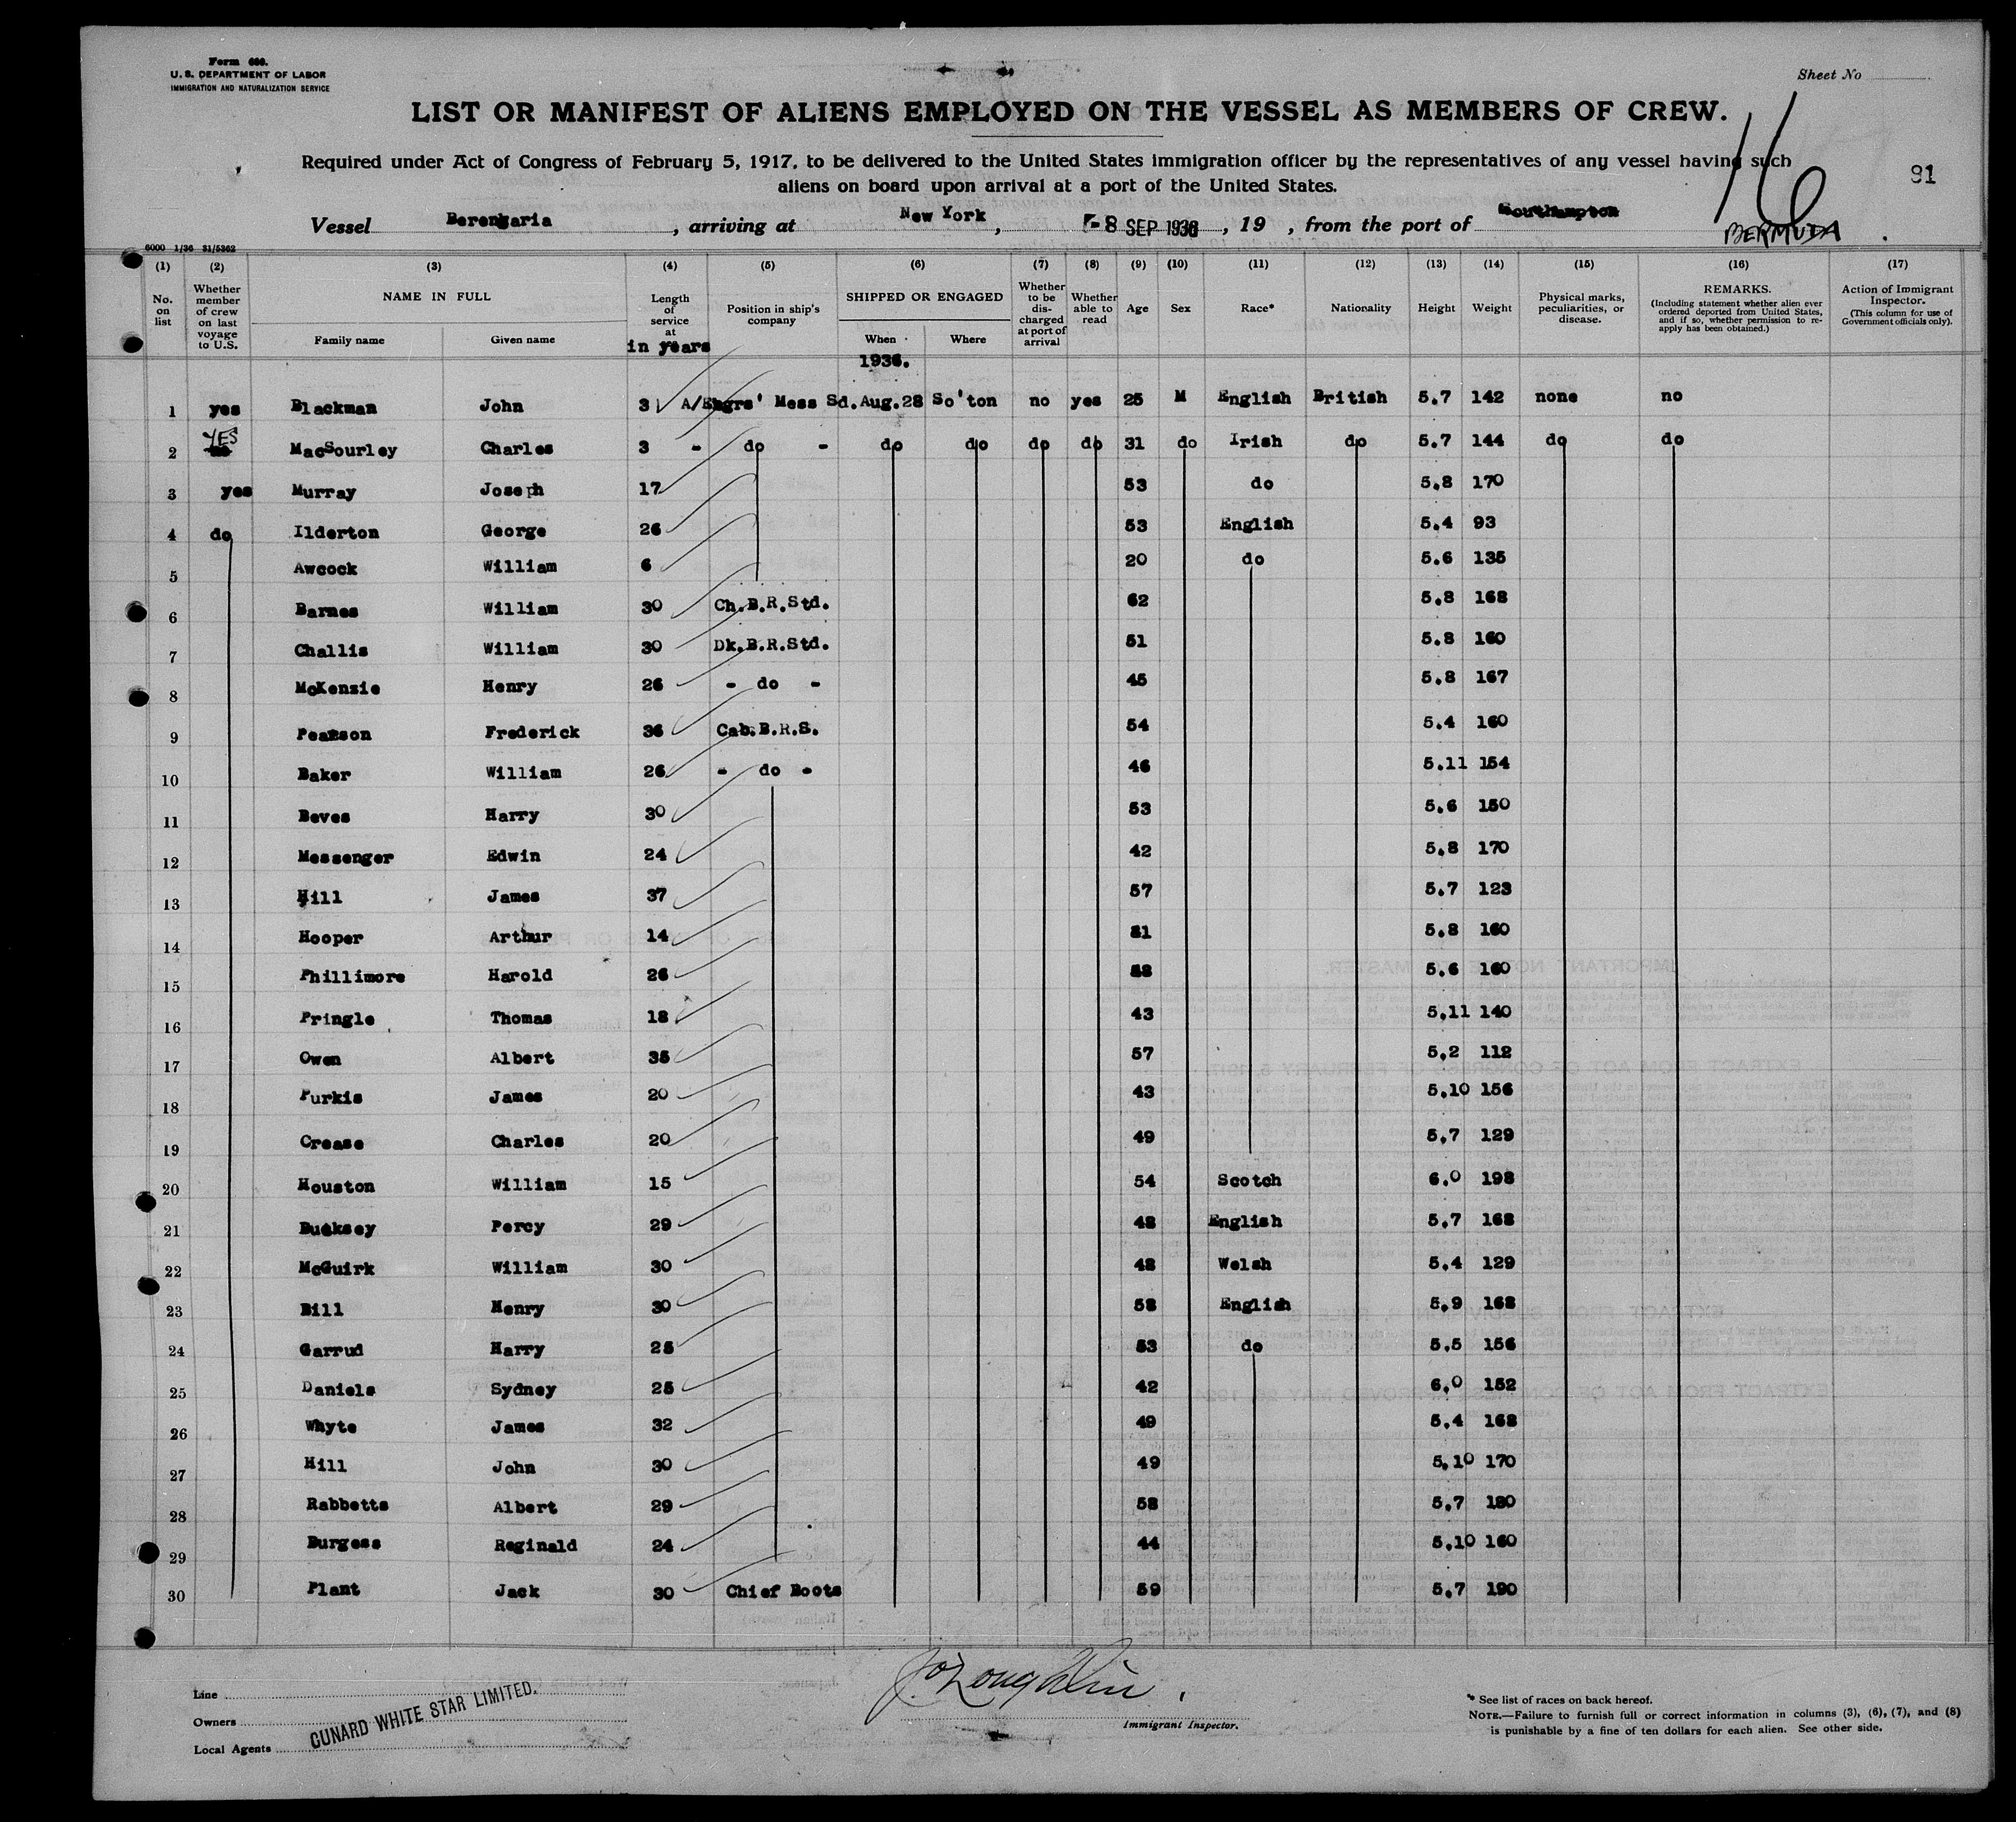 Form 680.
U. S. DEPARTMENT OF LABOR
IMMIGRATION AND NATURALIZATION SERVICE
Sheet No
LIST OR MANIFEST OF ALIENS EMPLOYED ON THE VESSEL AS MEMBERS OF CREW.
Required under Act of Congress of February 5, 1917, to be delivered to the United States immigration officer by the representatives of any vessel having such
aliens on board upon arrival at a port of the United States.
16
91
Vessel Berengaria, arriving at New York, -8 SEP 1936, 19 , from the port of Southampton BERMUDA
6000 1/36 31/5362
(1) (2) (3) (4) (5) (6) (7) (8) (9) (10) (11) (12) (13) (14) (15) (16) (17)
No. on list
Whether member of crew on last voyage to U.S.
NAME IN FULL
Family name Given name
Length of service at in years
Position in ship's company
SHIPPED OR ENGAGED
When Where
1936.
Whether to be discharged at port of arrival
Whether able to read
Age
Sex
Race*
Nationality
Height
Weight
Physical marks, peculiarities, or disease.
REMARKS.
(Including statement whether alien ever ordered deported from United States, and if so, whether permission to reapply has been obtained.)
Action of Immigrant Inspector.
(This column for use of Government officials only).
1 yes Blackman John 3 A/Engrs' Mess Sd. Aug.28 So'ton no yes 25 M English British 5.7 142 none no
2 YES no MacSourley Charles 3 - do - do do do do 31 do Irish do 5.7 144 do do
3 yes Murray Joseph 17 53 do 5.8 170
4 do Ilderton George 26 53 English 5.4 93
5 Awcock William 6 20 do 5.6 135
6 Barnes William 30 Ch.B.R.Std. 62 5.8 168
7 Challis William 30 Dk.B.R.Std. 51 5.8 160
8 McKenzie Henry 26 - do - 45 5.8 167
9 Pearson Frederick 36 Cab.B.R.S. 54 5.4 160
10 Baker William 26 - do - 46 5.11 154
11 Beves Harry 30 53 5.6 150
12 Messenger Edwin 24 42 5.8 170
13 Hill James 37 57 5.7 123
14 Hooper Arthur 14 5.8 160
15 Phillimore Harold 26 5.6 160
16 Pringle Thomas 18 43 5.11 140
17 Owen Albert 35 57 5.2 112
18 Purkis James 20 43 5.10 156
19 Crease Charles 20 49 5.7 129
20 Houston William 15 54 Scotch 6.0 198
21 Bucksey Percy 29 48 English 5.7 168
22 McGuirk William 30 48 Welsh 5.4 129
23 Bill Henry 30 58 English 5.9 168
24 Garrud Harry 25 53 do 5.5 156
25 Daniels Sydney 25 42 6.0 152
26 Whyte James 32 49 5.4 168
27 Hill John 30 49 5.10 170
28 Rabbetts Albert 29 58 5.7 180
29 Burgess Reginald 24 44 5.10 160
30 Plant Jack 30 Chief Boots 59 5.7 190
Line
Owners
Local Agents
CUNARD WHITE STAR LIMITED.
J. O'Loughlin
Immigrant Inspector.
* See list of races on back hereof.
NOTE.—Failure to furnish full or correct information in columns (3), (6), (7), and (8)
is punishable by a fine of ten dollars for each alien. See other side.